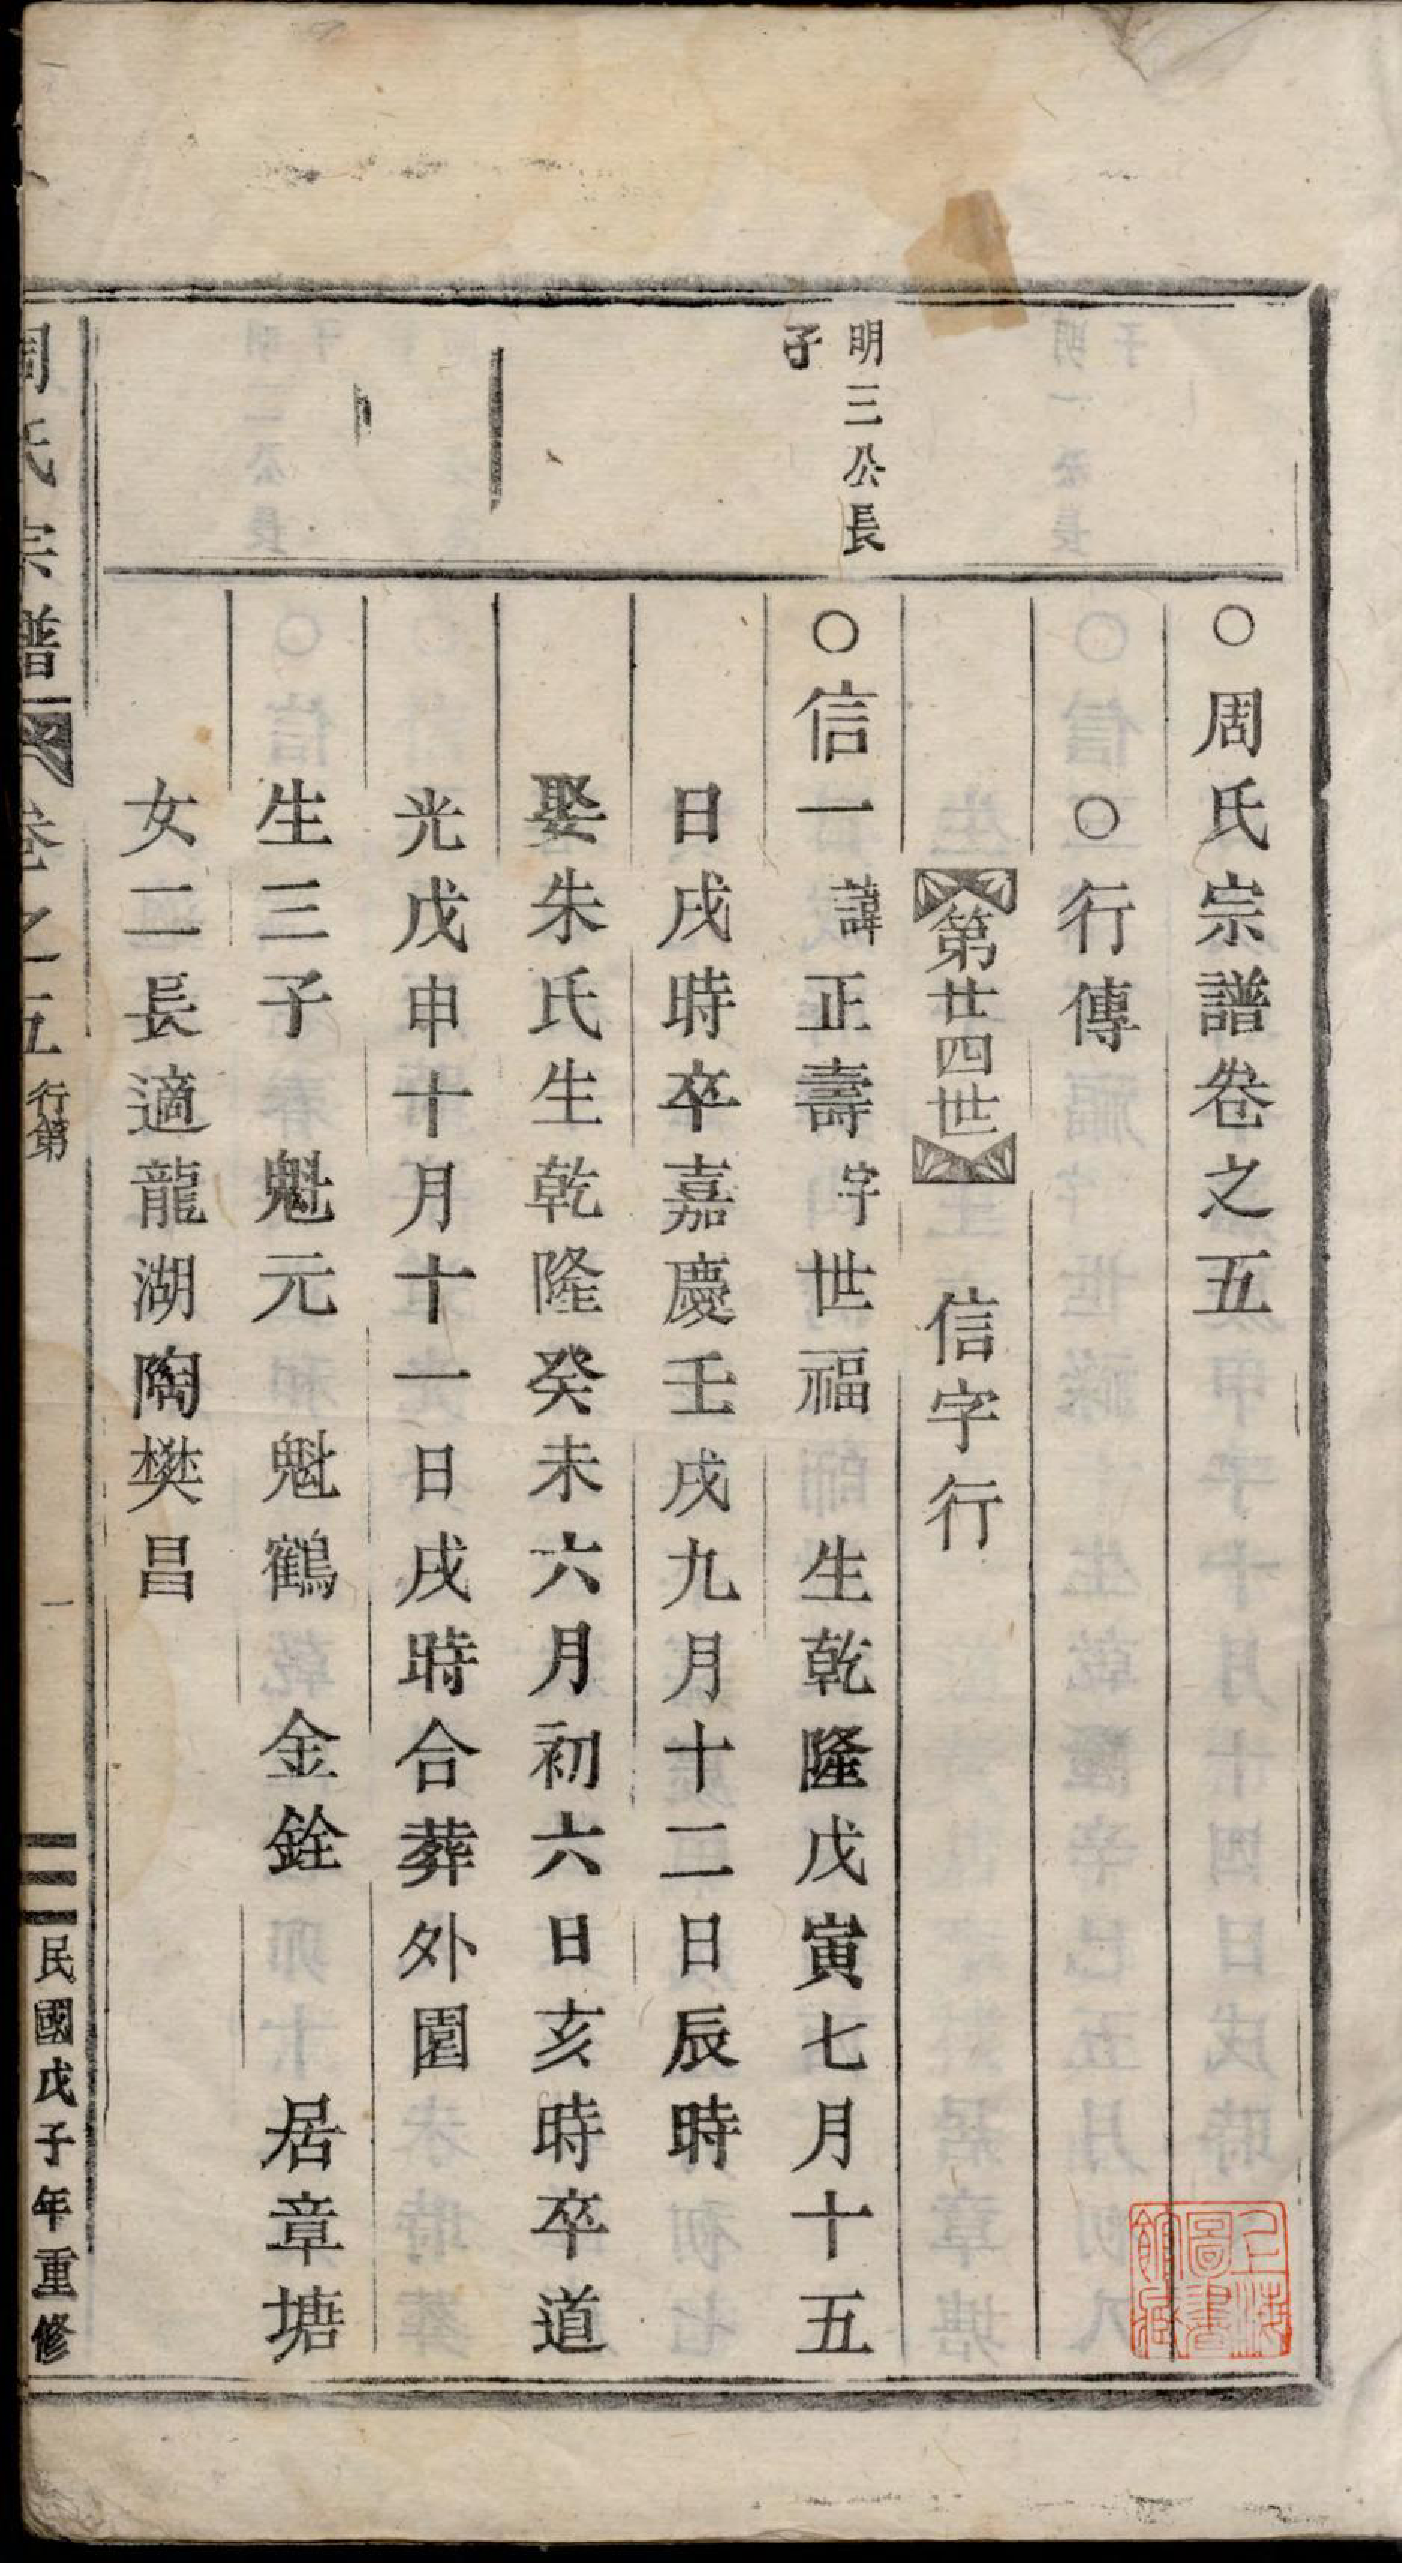 ○周氏宗譜卷之五
○行傳
第廿四世 信字行
明三公長
子
○信一 諱正壽 字世福 生乾隆戊寅七月十五
日戌時卒嘉慶壬戌九月十二日辰時
娶朱氏生乾隆癸未六月初六日亥時卒道
光戊申十月十一日戌時合葬外園
生三子 魁元 魁鶴 金銓 居章塘
女二長適龍湖陶樊昌
周氏宗譜 卷之五 行第 一 民國戊子年重修
上海圖書館藏